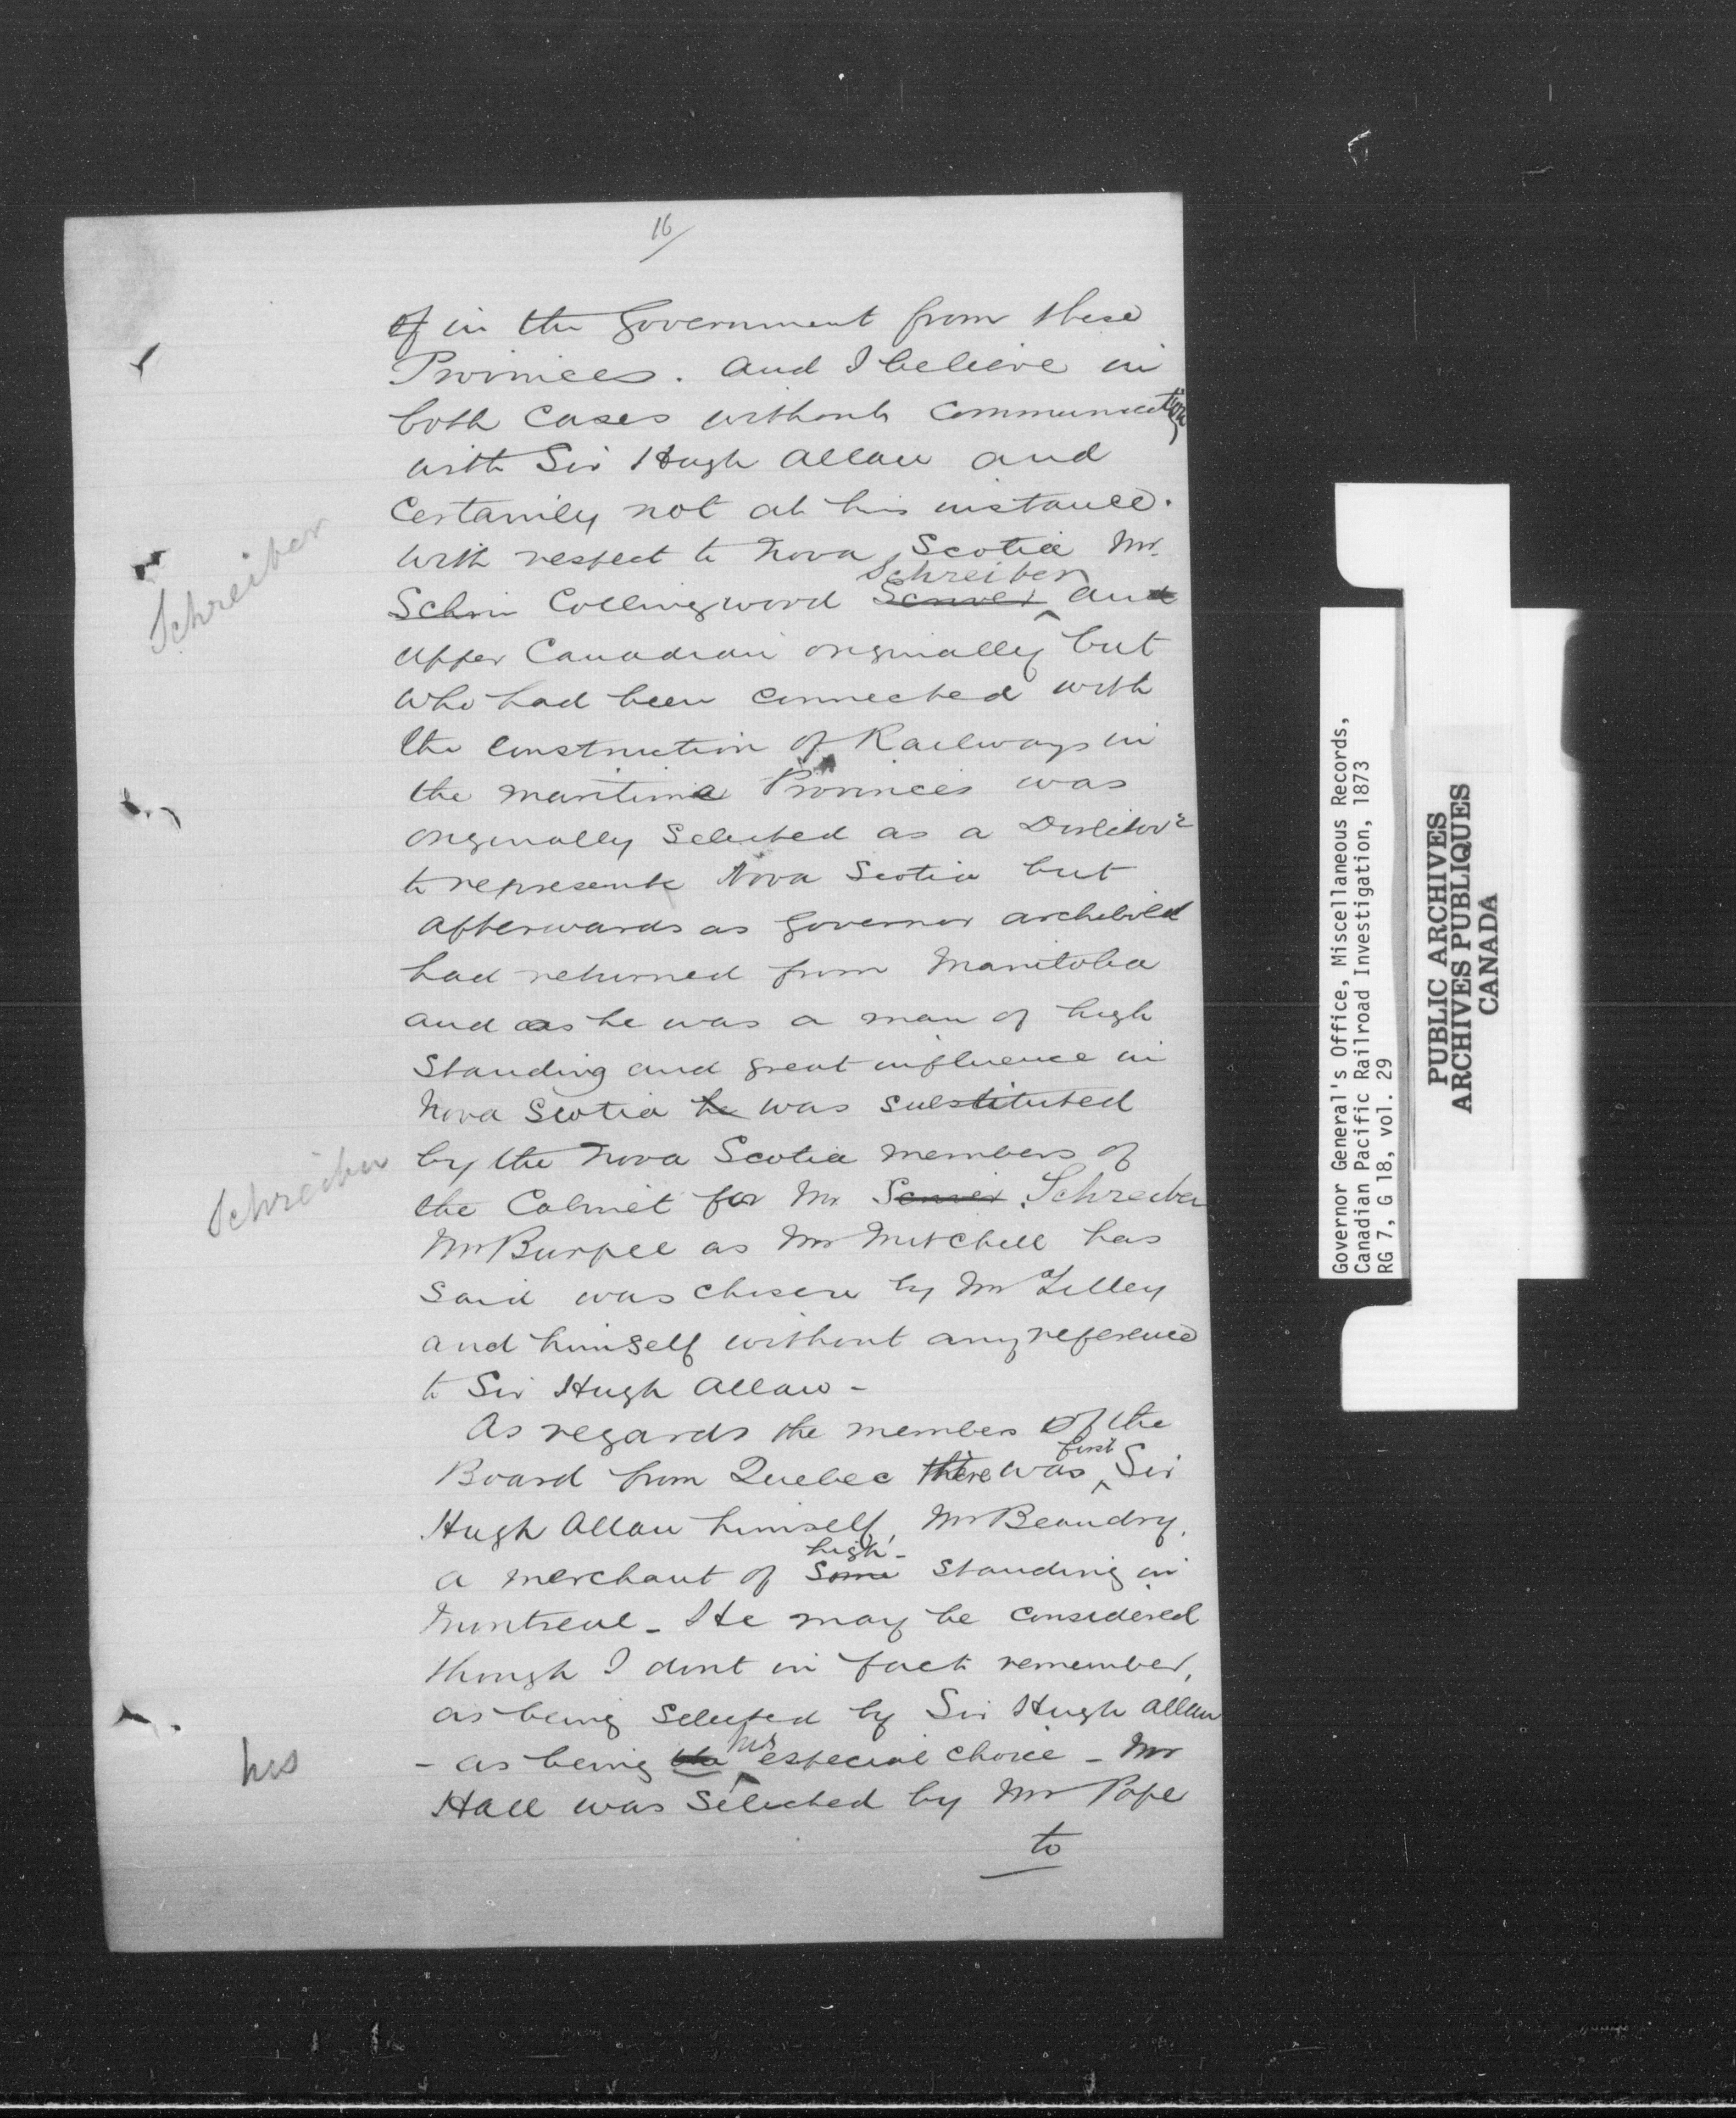 16/
of in the Government from these
Provinces. And I believe in
both cases without communication
with Sir Hugh Allan and
Certainly not at his instance.
With respect to Nova Scotia Mr.
Schreiber
Schri Collingwood Scriver an
Schreiber
Upper Canadian originally but
who had been connected with
the construction of Railways in
the Maritime Provinces was
originally selected as a Director
to represent Nova Scotia but
afterwards as Governor Archibald
had returned from Manitoba
and as he was a man of high
standing and great influence in
Nova Scotia he was substituted
by the Nova Scotia members of
Schreiber
the Cabinet for Mr Scriver. Schreiber
Mr Burpee as Mr Mitchell has
said was chosen by Mr Tilley
and himself without any reference
to Sir Hugh Allan -
As regards the members of the
first
Board from Quebec there was Sir
Hugh Allan himself, Mr Beaudry,
high
a merchant of some standing in
Montreal - He may be considered
though I dont in fact remember,
as being selected by Sir Hugh Allan
his
- as being the especial choice - Mr
his
Hall was selected by Mr Pope
to
Governor General's Office, Miscellaneous Records,
Canadian Pacific Railroad Investigation, 1873
RG 7, G 18, vol. 29
PUBLIC ARCHIVES
ARCHIVES PUBLIQUES
CANADA